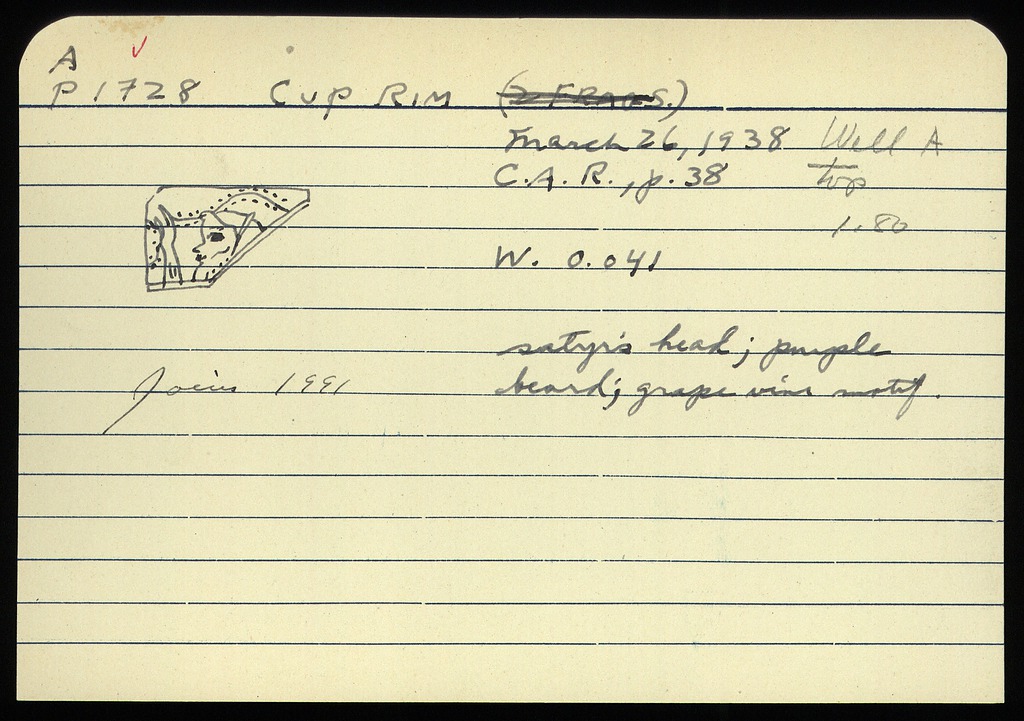 A ✓
P 1728 CUP RIM (2 FRAGS.)
March 26, 1938 Well A
C.A.R., p. 38 top
1.80
W. 0.041
satyr's head; purple
Joins 1991 beard; grape vine motif.